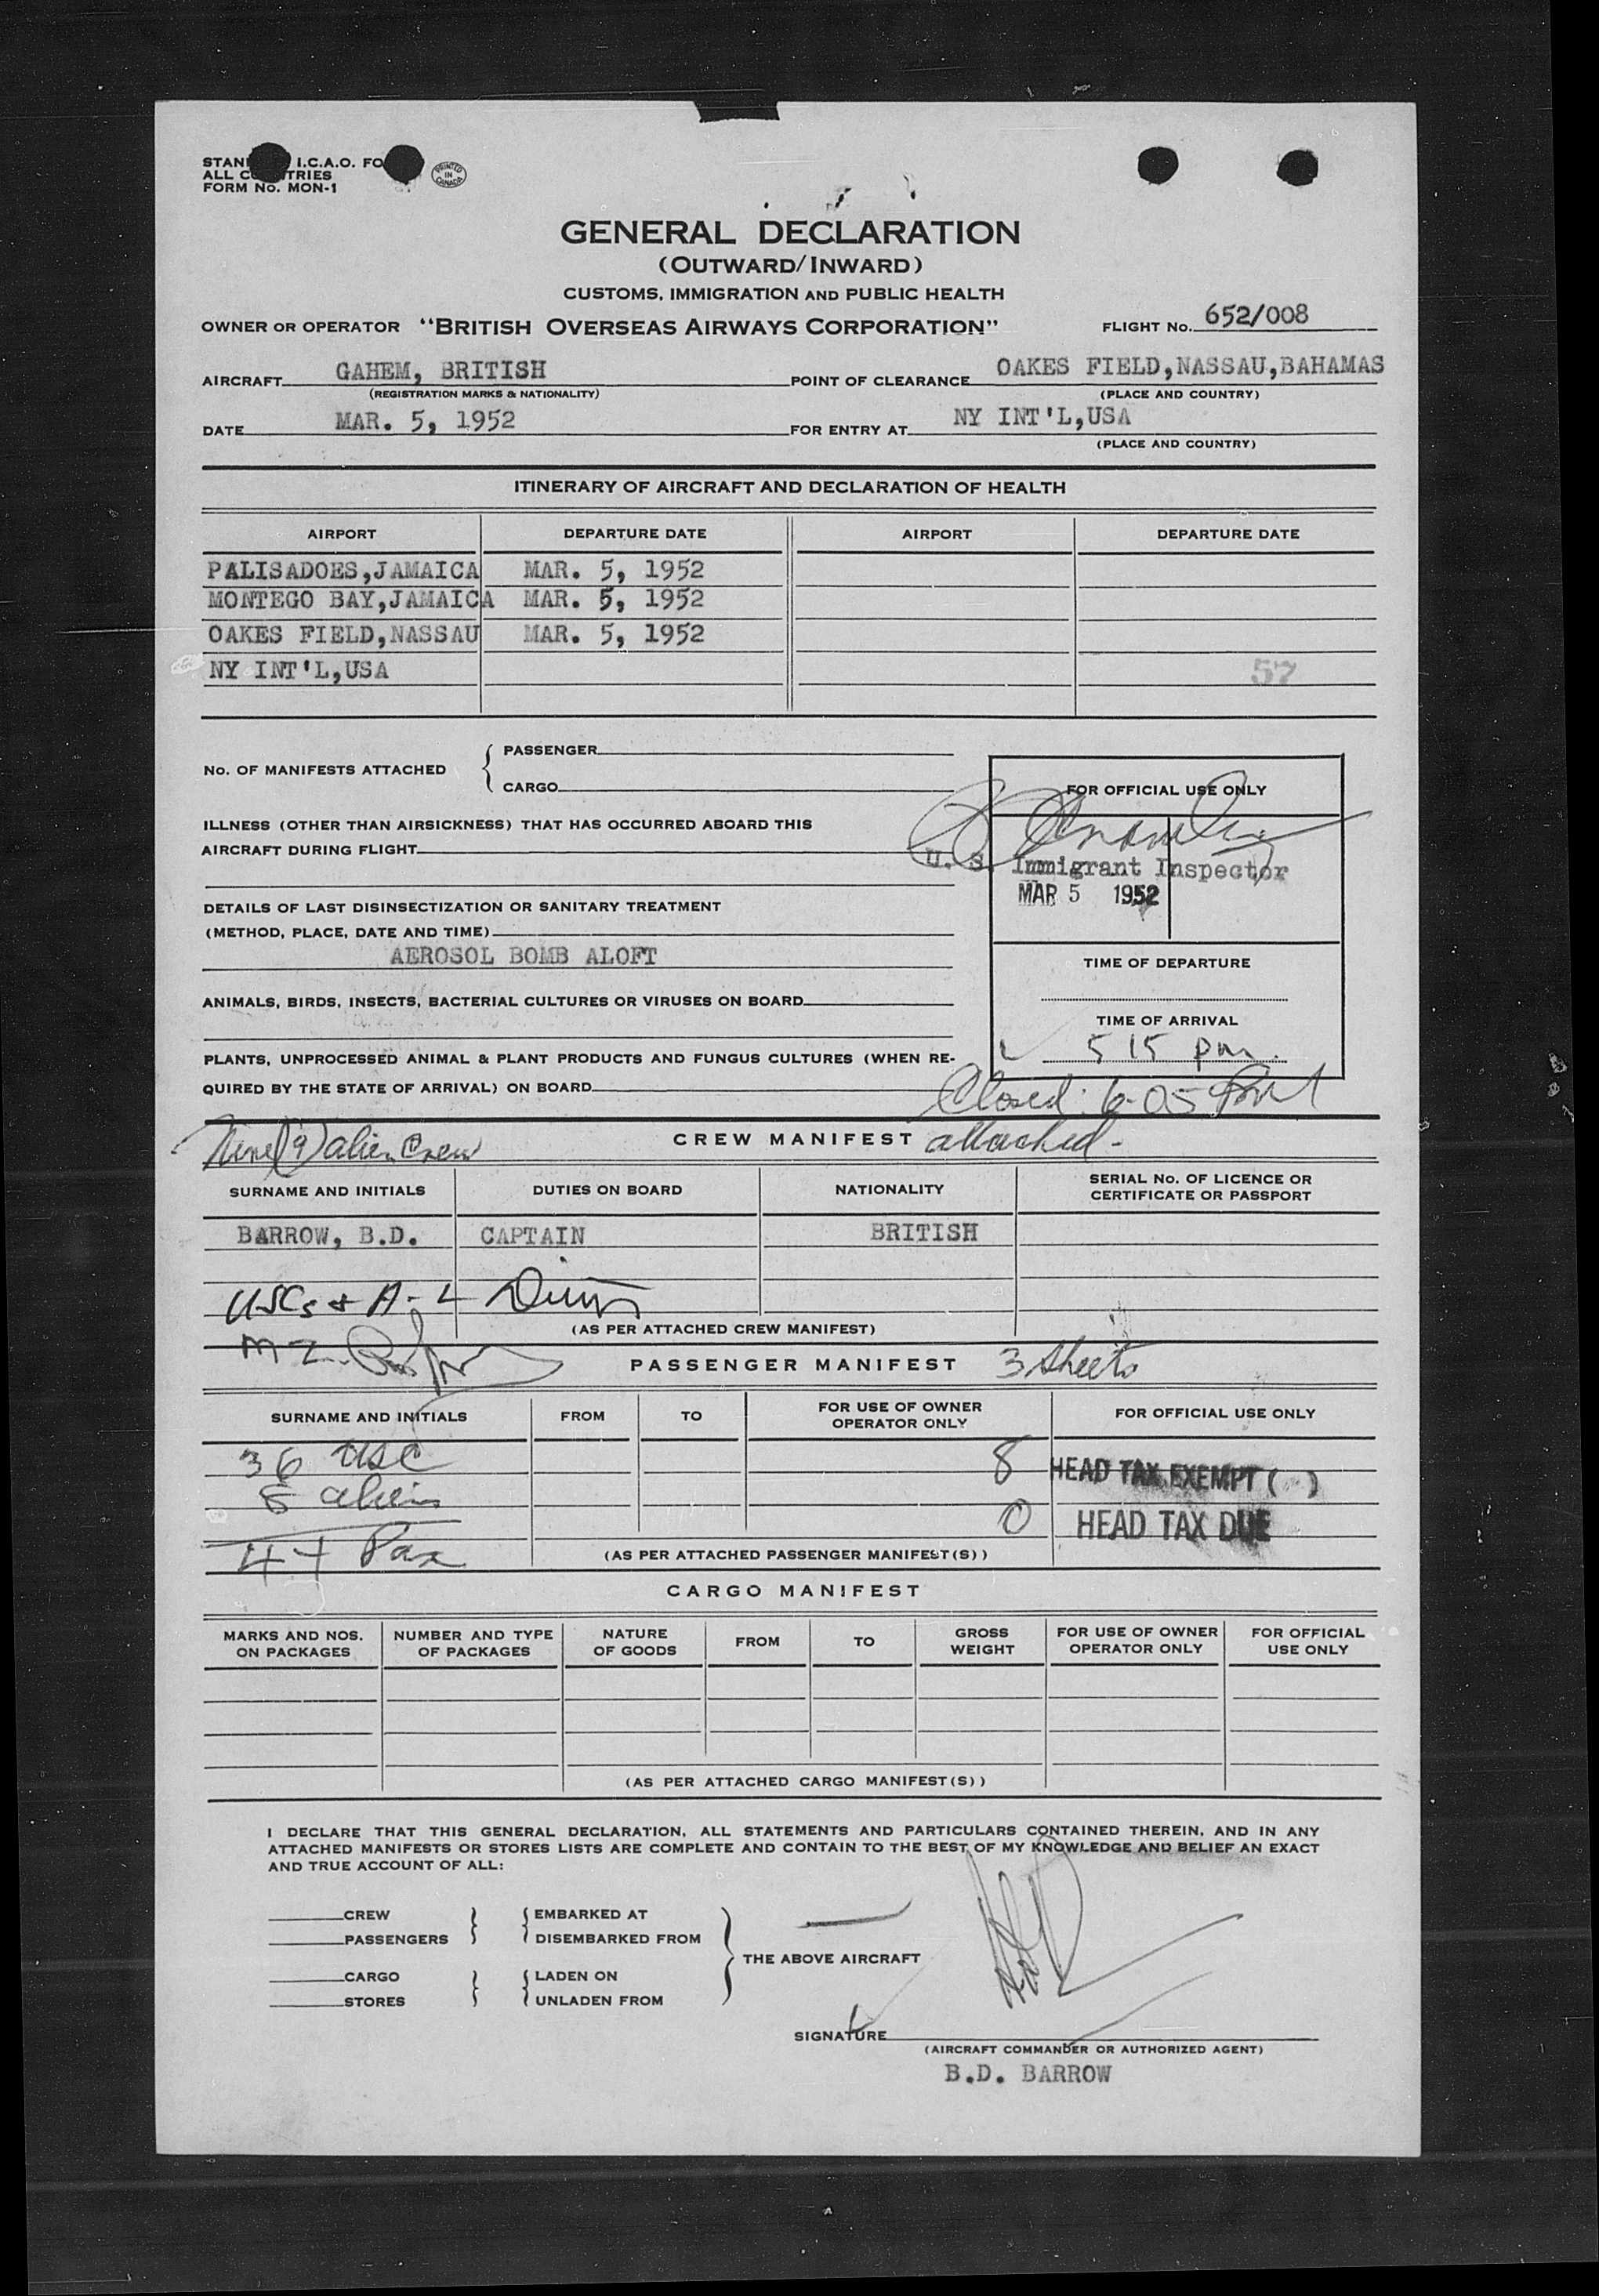 STAN I.C.A.O. FO
ALL C TRIES
FORM No. MON-1
PRINTED IN CANADA
GENERAL DECLARATION
(OUTWARD/INWARD)
CUSTOMS, IMMIGRATION AND PUBLIC HEALTH
OWNER OR OPERATOR "BRITISH OVERSEAS AIRWAYS CORPORATION" FLIGHT No. 652/008
AIRCRAFT GAHEM, BRITISH POINT OF CLEARANCE OAKES FIELD,NASSAU,BAHAMAS
(REGISTRATION MARKS & NATIONALITY) (PLACE AND COUNTRY)
DATE MAR. 5, 1952 FOR ENTRY AT NY INT'L,USA
(PLACE AND COUNTRY)
ITINERARY OF AIRCRAFT AND DECLARATION OF HEALTH
AIRPORT DEPARTURE DATE AIRPORT DEPARTURE DATE
PALISADOES,JAMAICA MAR. 5, 1952
MONTEGO BAY,JAMAICA MAR. 5, 1952
OAKES FIELD,NASSAU MAR. 5, 1952
NY INT'L,USA 57
No. OF MANIFESTS ATTACHED { PASSENGER
CARGO
FOR OFFICIAL USE ONLY
ILLNESS (OTHER THAN AIRSICKNESS) THAT HAS OCCURRED ABOARD THIS
AIRCRAFT DURING FLIGHT
U. S. Immigrant Inspector
MAR 5 1952
DETAILS OF LAST DISINSECTIZATION OR SANITARY TREATMENT
(METHOD, PLACE, DATE AND TIME)
AEROSOL BOMB ALOFT
TIME OF DEPARTURE
ANIMALS, BIRDS, INSECTS, BACTERIAL CULTURES OR VIRUSES ON BOARD
TIME OF ARRIVAL
5 15 pm.
PLANTS, UNPROCESSED ANIMAL & PLANT PRODUCTS AND FUNGUS CULTURES (WHEN RE-
QUIRED BY THE STATE OF ARRIVAL) ON BOARD
Closed: 6-05 PM
Nine (9) alien Crew CREW MANIFEST attached-
SURNAME AND INITIALS DUTIES ON BOARD NATIONALITY SERIAL No. OF LICENCE OR
CERTIFICATE OR PASSPORT
BARROW, B.D. CAPTAIN BRITISH
USCs + A-L
(AS PER ATTACHED CREW MANIFEST)
PASSENGER MANIFEST 3 sheets
SURNAME AND INITIALS FROM TO FOR USE OF OWNER
OPERATOR ONLY FOR OFFICIAL USE ONLY
36 USC 8 HEAD TAX EXEMPT ( )
8 aliens 0 HEAD TAX DUE
44 Pax (AS PER ATTACHED PASSENGER MANIFEST(S))
CARGO MANIFEST
MARKS AND NOS.
ON PACKAGES NUMBER AND TYPE
OF PACKAGES NATURE
OF GOODS FROM TO GROSS
WEIGHT FOR USE OF OWNER
OPERATOR ONLY FOR OFFICIAL
USE ONLY
(AS PER ATTACHED CARGO MANIFEST(S))
I DECLARE THAT THIS GENERAL DECLARATION, ALL STATEMENTS AND PARTICULARS CONTAINED THEREIN, AND IN ANY
ATTACHED MANIFESTS OR STORES LISTS ARE COMPLETE AND CONTAIN TO THE BEST OF MY KNOWLEDGE AND BELIEF AN EXACT
AND TRUE ACCOUNT OF ALL:
CREW EMBARKED AT
PASSENGERS DISEMBARKED FROM
THE ABOVE AIRCRAFT
CARGO LADEN ON
STORES UNLADEN FROM
SIGNATURE
(AIRCRAFT COMMANDER OR AUTHORIZED AGENT)
B.D. BARROW